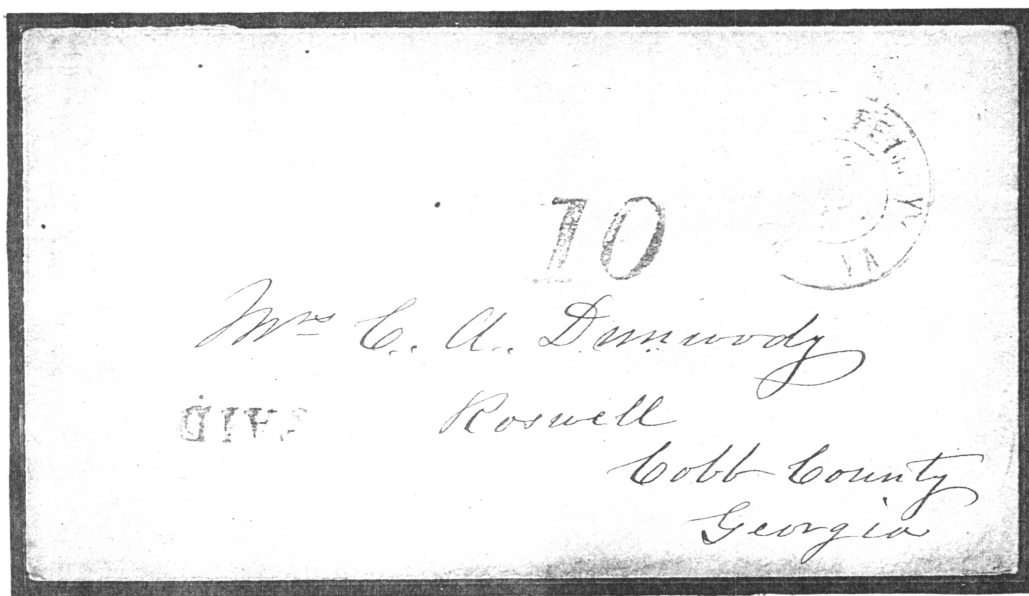 10
Mrs C. A. Dunwody
PAID
Roswell
Cobb County
Georgia
VA